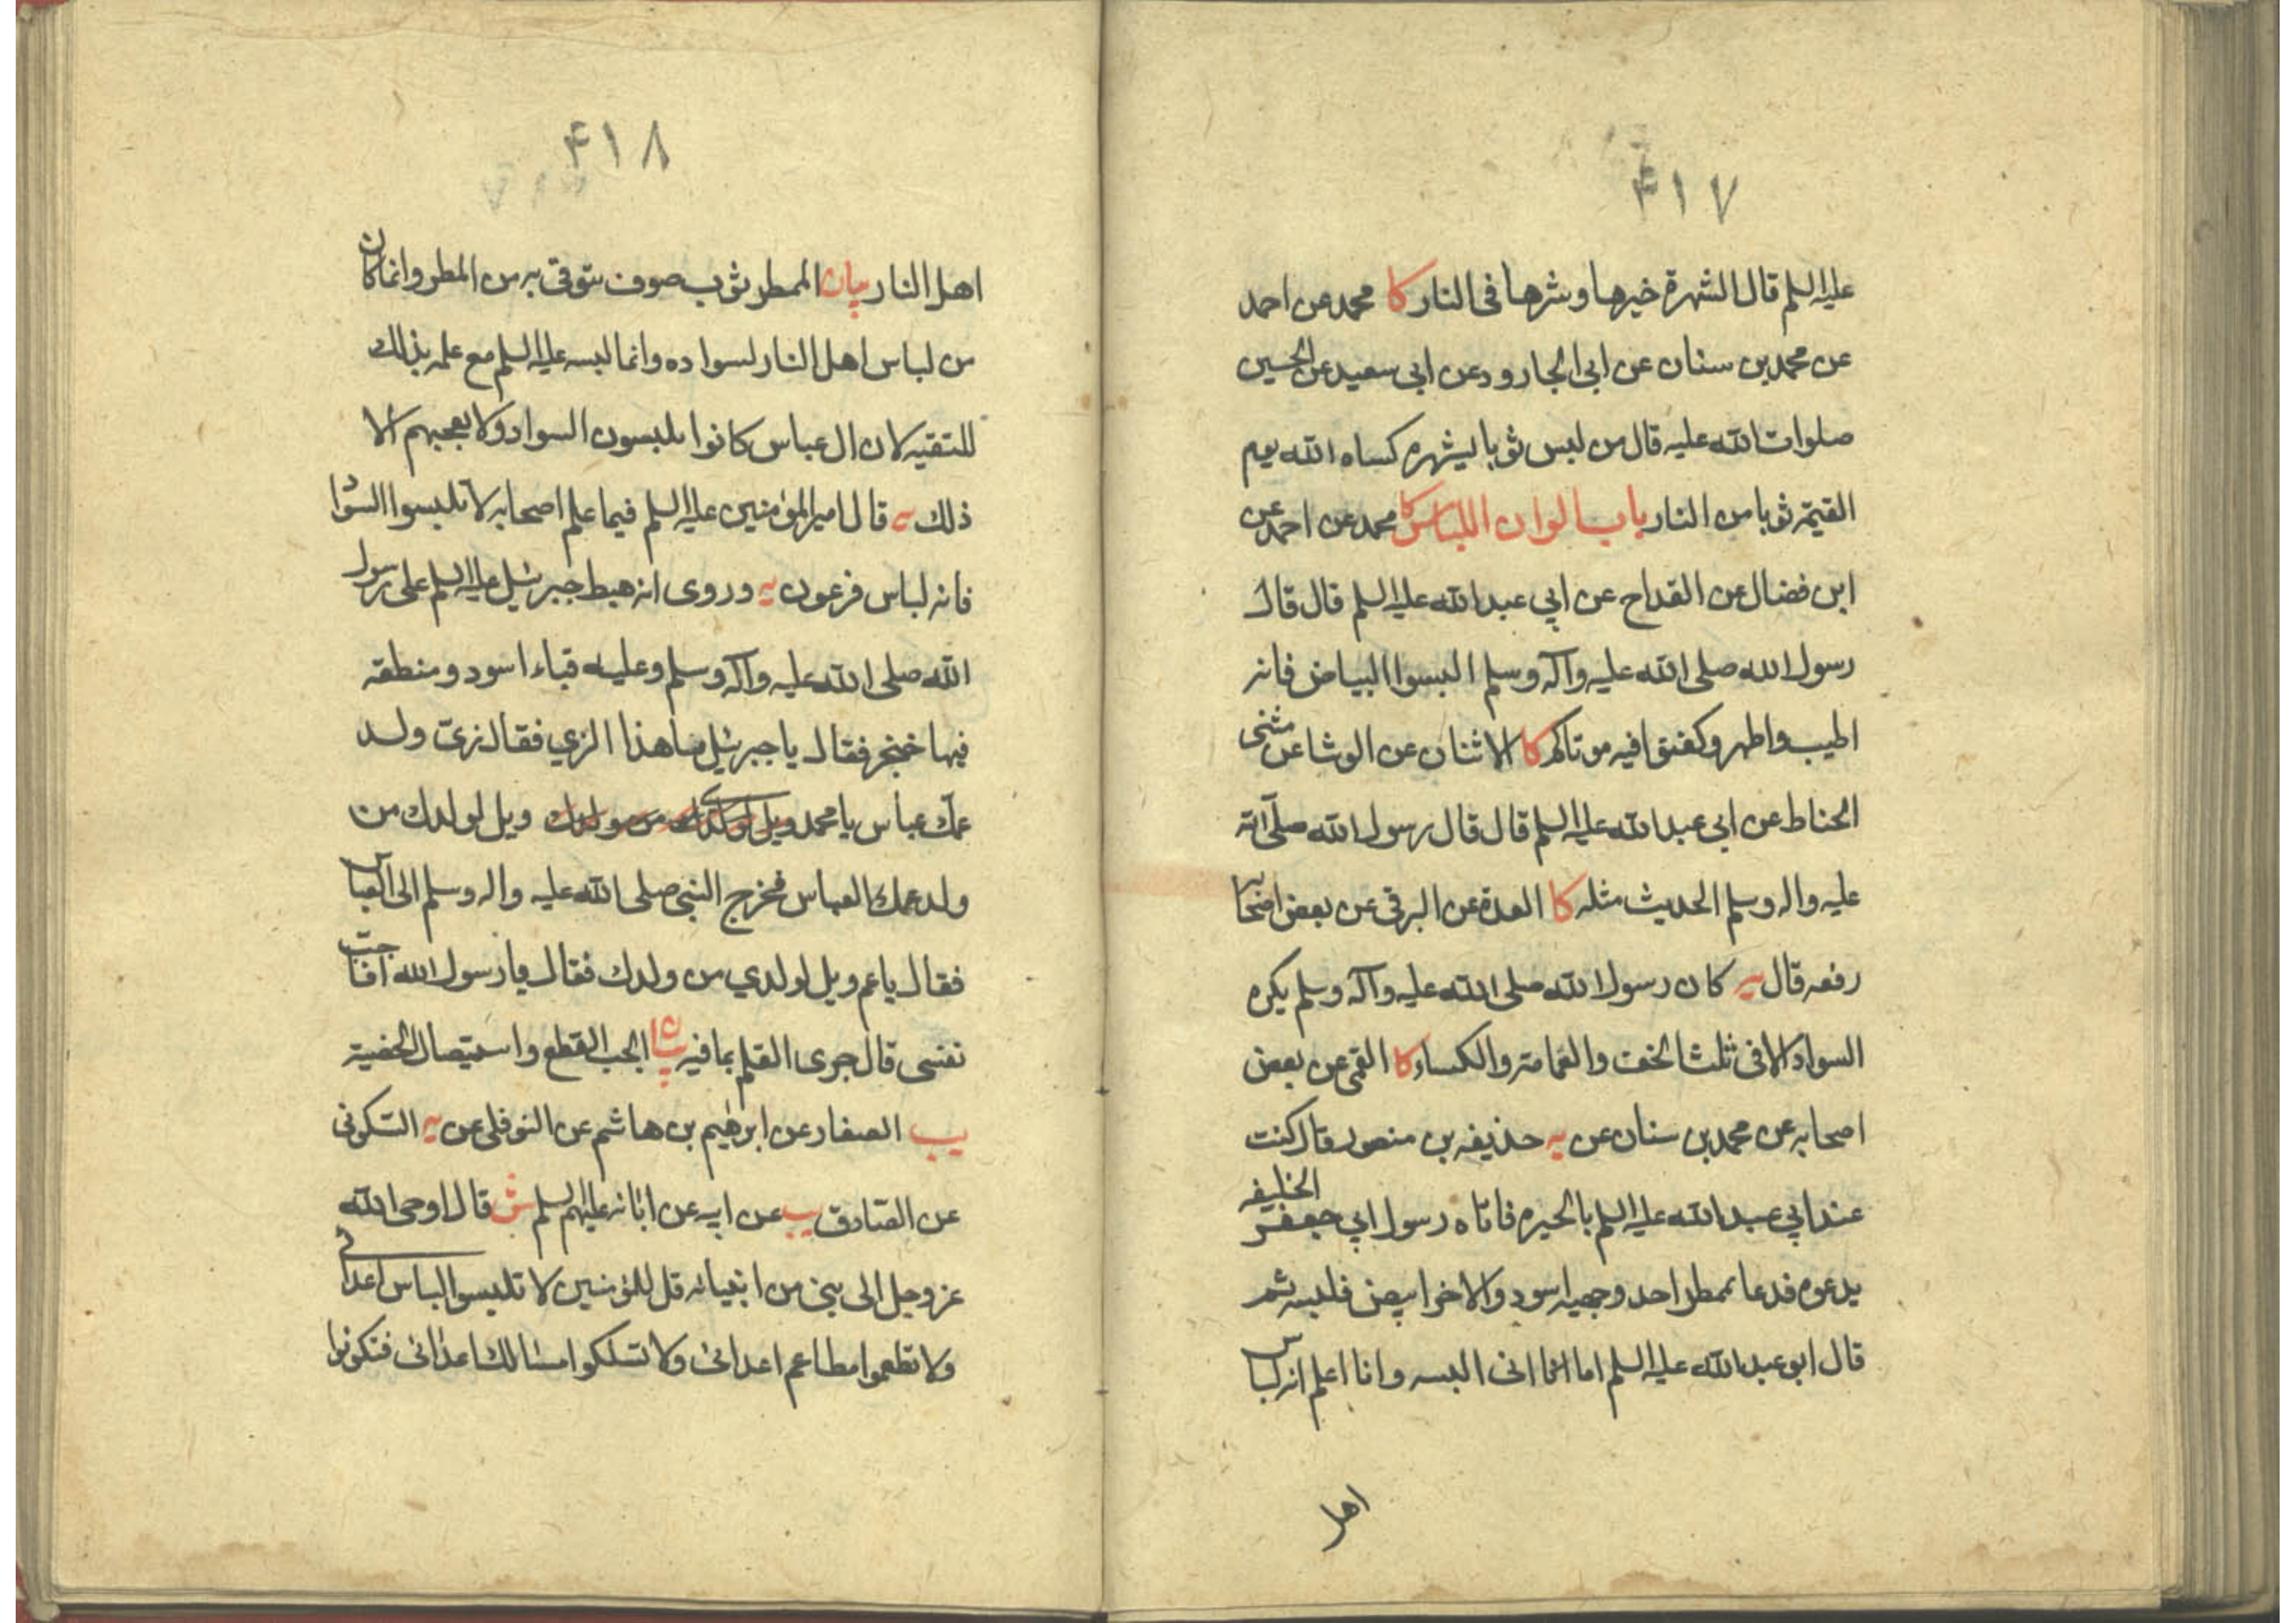 ۴۱۷
عليه السلم قال الشهرة خيرها وشرها فى النار كا محمد عن احمد
عن محمد بن سنان عن ابى الجارود عن ابى سعيد عن الحسين
صلوات الله عليه قال من لبس ثوبا يشهره كساه الله يوم
القيمة ثوبا من النار باب الوان اللباس كا محمد عن احمد عن
ابن فضال عن القداح عن ابي عبد الله عليه السلم قال قال
رسول الله صلى الله عليه وآله وسلم البسوا البياض فانه
اطيب واطهر وكفنوا فيه موتاكم كا الاثنان عن الوشا عن مثنى
الحناط عن ابى عبد الله عليه السلم قال قال رسول الله صلى الله
عليه واله وسلم الحديث مثله كا العدة عن البرقى عن بعض اصحابه
رفعه قال يه كان رسول الله صلى الله عليه وآله وسلم يكره
السواد الا فى ثلث الخف والعمامة والكساء كا القمى عن بعض
اصحابه عن محمد بن سنان عن يه حذيفه بن منصور قال كنت
عند ابي عبد الله عليه السلم بالحيره فاتاه رسول ابي جعفر الخليفه
يدعوه فدعا بممطر احد وجهيه اسود والاخر ابيض فلبسه ثم
قال ابو عبد الله عليه السلم اما انى البسه وانا اعلم انه لباس
اهل
۴۱۸
اهل النار بيان الممطر ثوب صوف يتوقى به من المطر وانما كان
من لباس اهل النار لسواده وانما لبسه عليه السلم مع علمه بذلك
للتقيه لان ال عباس كانوا يلبسون السواد ولا يعجبهم الا
ذلك يه قال امير المؤمنين عليه السلم فيما علم اصحابه لا تلبسوا السواد
فانه لباس فرعون يه وروى انه هبط جبرئيل عليه السلم على رسول
الله صلى الله عليه وآله وسلم وعليه قباء اسود ومنطقه
فيها خنجر فقال يا جبرئيل ما هذا الزي فقال زى ولد
عمك عباس يا محمد ويل لولدك من
ولد عمك العباس فخرج النبى صلى الله عليه واله وسلم الى العباس
فقال يا عم ويل لولدي من ولدك فقال يا رسول الله افاجب
نفسى قال جرى القلم بما فيه بيان الجب القطع واستيصال الخصية
يب الصفار عن ابرهيم بن هاشم عن النوفلى عن يه السكونى
عن الصادق يب عن ابيه عن ابائه عليهم السلم ش قال اوحى الله
عز وجل الى نبى من انبيائه قل للمؤمنين لا تلبسوا لباس اعدائى
ولا تطعموا مطاعم اعدائى ولا تسلكوا مسالك اعدائى فتكونوا